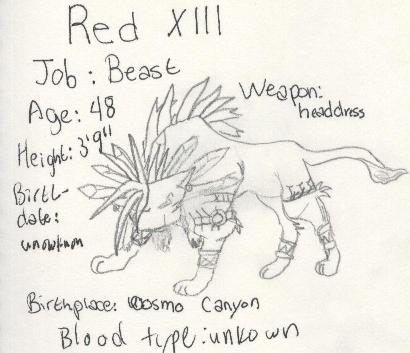 Red XIII
Job: Beast
Weapon:
headdress
Age: 48
Height: 3'9"
Birth-
date:
unowknon
Birthplace: Cosmo Canyon
Blood type: unkown